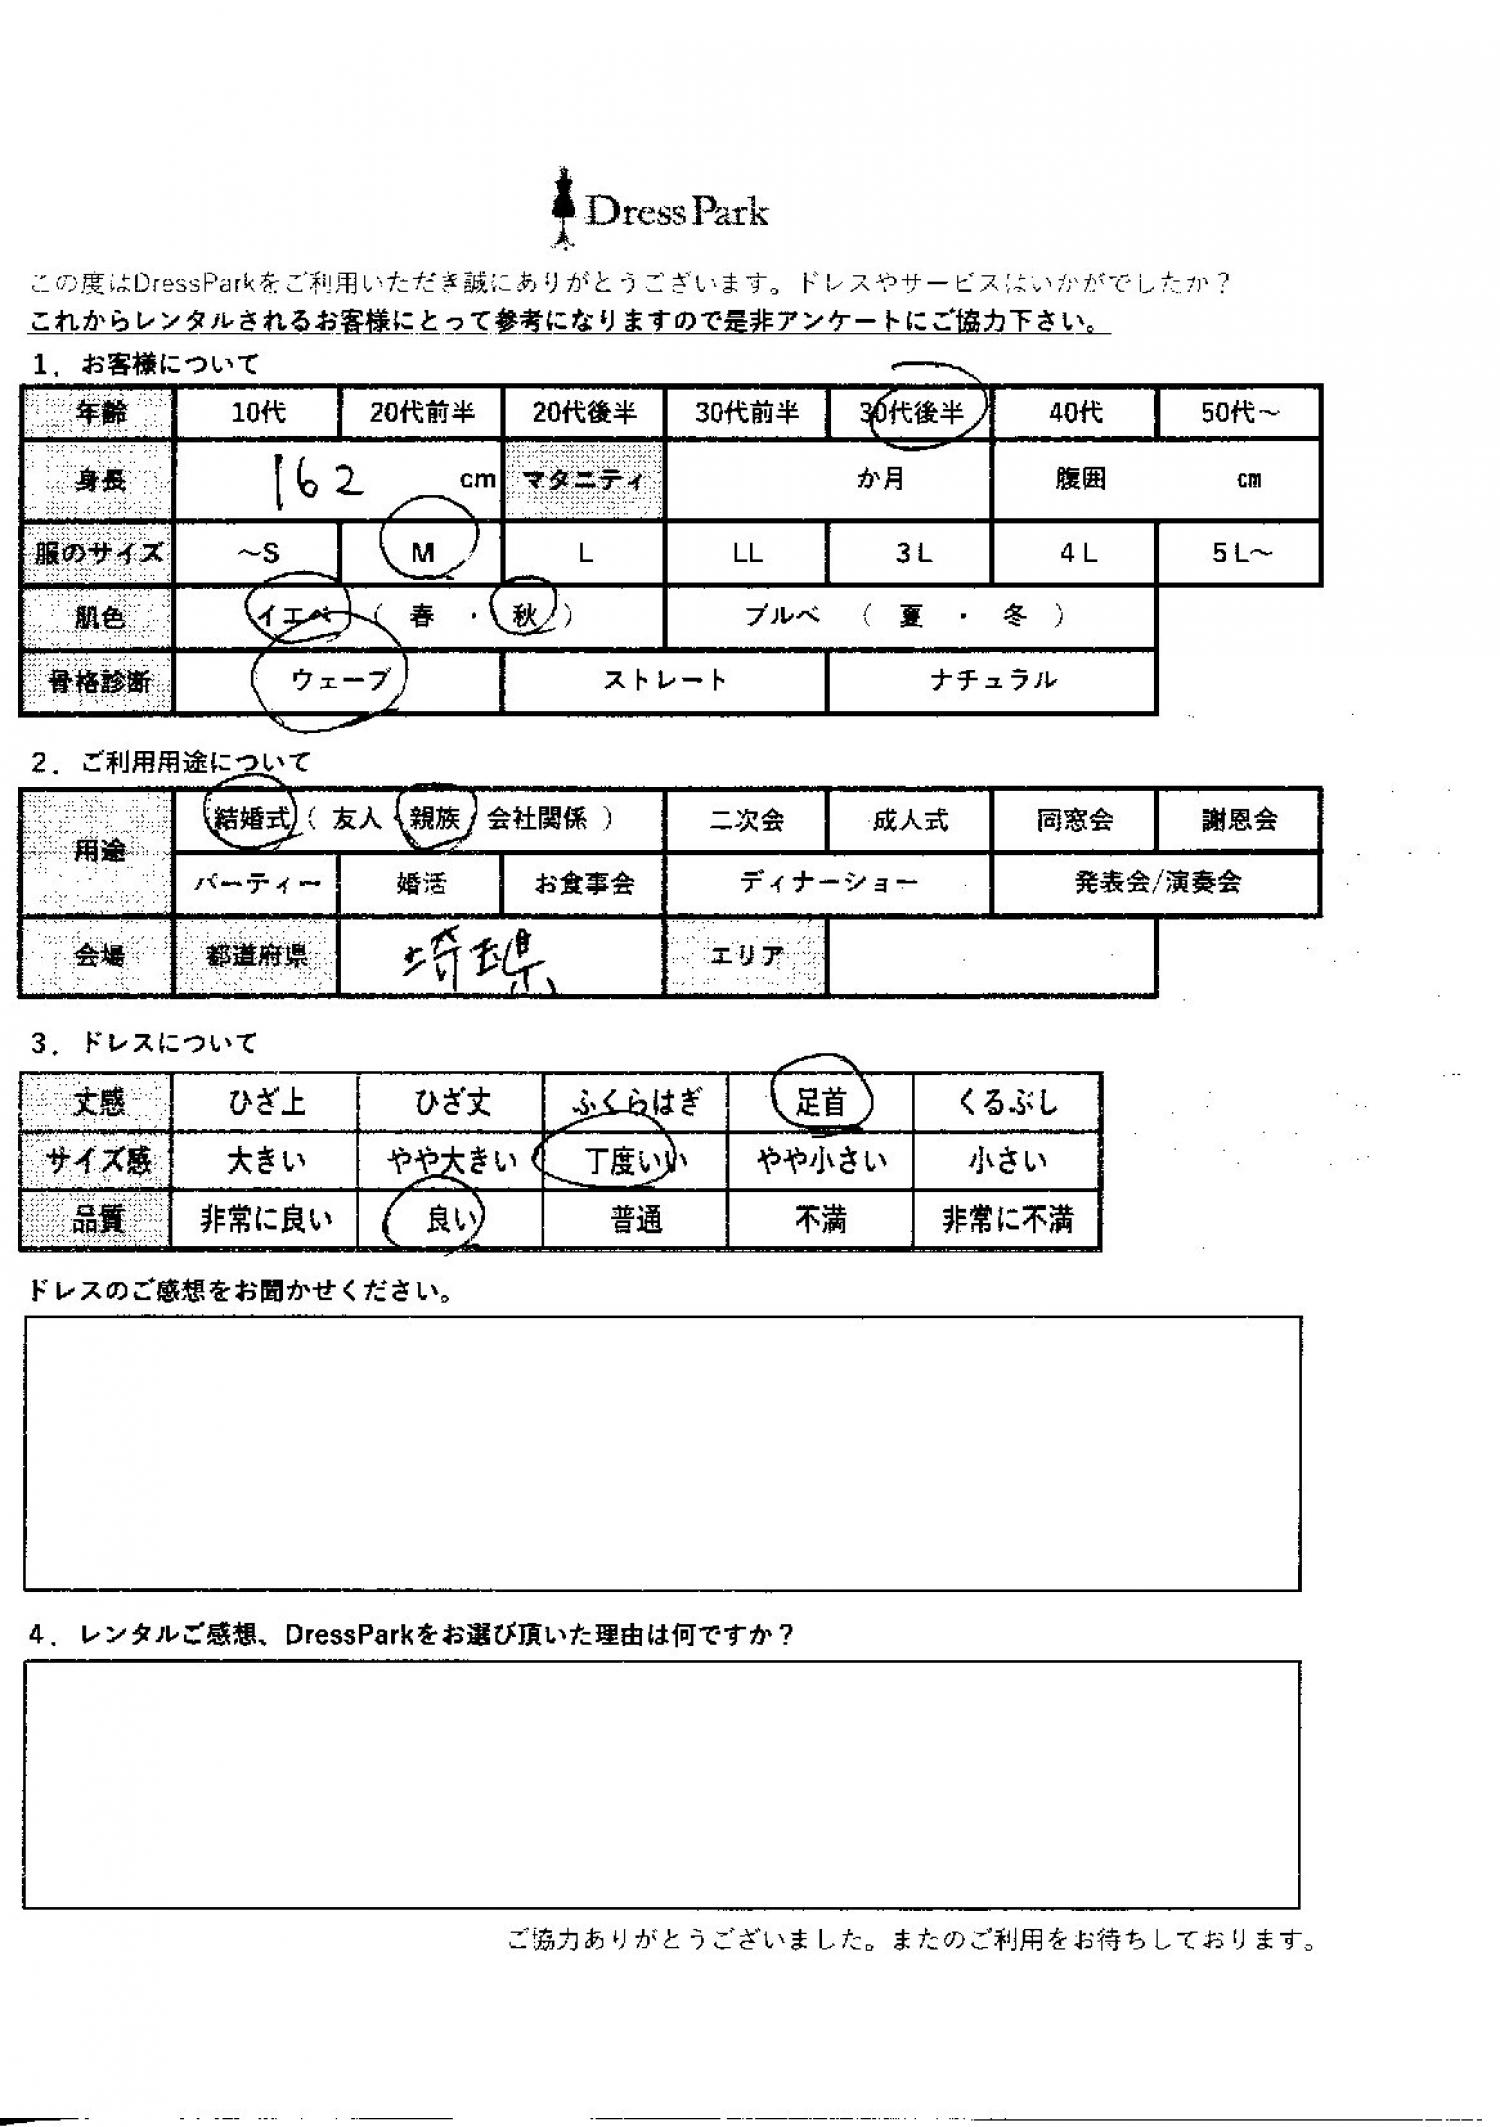 DressPark
この度はDressParkをご利用いただき誠にありがとうございます。ドレスやサービスはいかがでしたか？
これからレンタルされるお客様にとって参考になりますので是非アンケートにご協力下さい。
1．お客様について
年齢 10代 20代前半 20代後半 30代前半 30代後半 40代 50代～
身長 162 cm マタニティ か月 腹囲 cm
服のサイズ ～S M L LL 3L 4L 5L～
肌色 イエベ（ 春 ・ 秋 ） ブルべ （ 夏 ・ 冬 ）
骨格診断 ウェーブ ストレート ナチュラル
2．ご利用用途について
用途 結婚式（ 友人・親族・会社関係 ） 二次会 成人式 同窓会 謝恩会
パーティー 婚活 お食事会 ディナーショー 発表会/演奏会
会場 都道府県 埼玉県 エリア
3．ドレスについて
丈感 ひざ上 ひざ丈 ふくらはぎ 足首 くるぶし
サイズ感 大きい やや大きい 丁度いい やや小さい 小さい
品質 非常に良い 良い 普通 不満 非常に不満
ドレスのご感想をお聞かせください。
4．レンタルご感想、DressParkをお選び頂いた理由は何ですか？
ご協力ありがとうございました。またのご利用をお待ちしております。